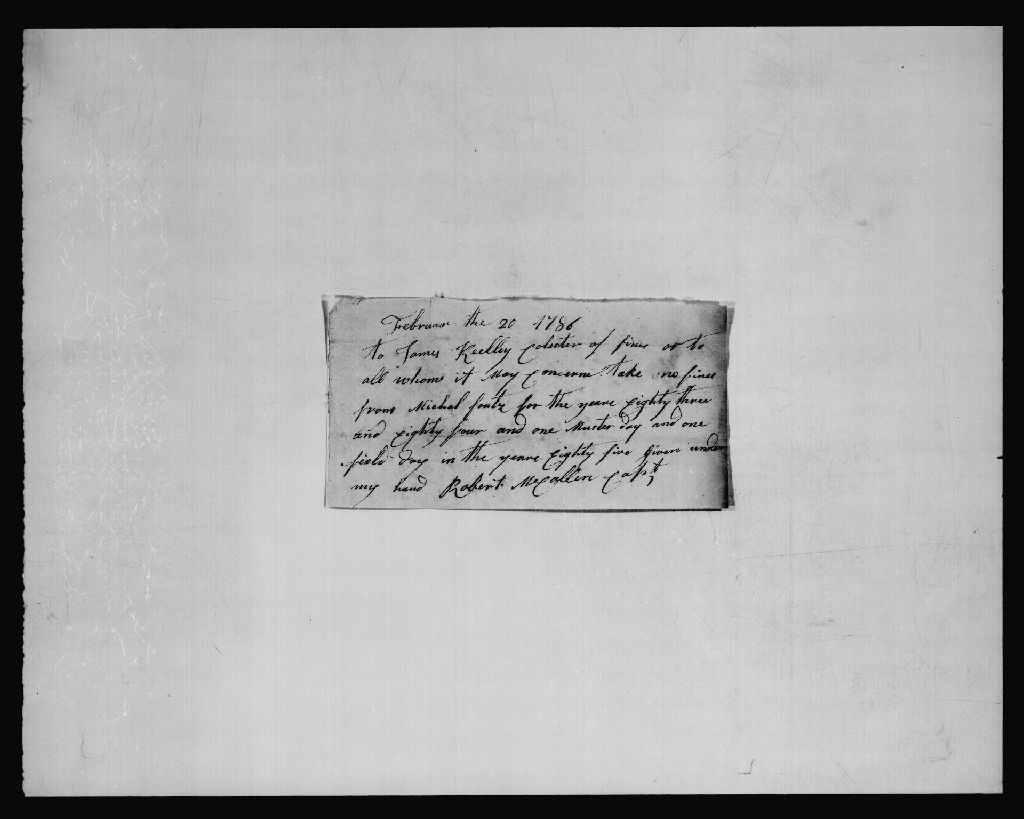 Frebruar the 20 1786
to James Keelley Colecter of fines or to
all whome it May Concerne take no fines
from Michal foutz for the yeare Eighty three
and Eighty four and one Muster day and one
field day in the yeare Eighty five Given under
my hand Robert McCallen Capt